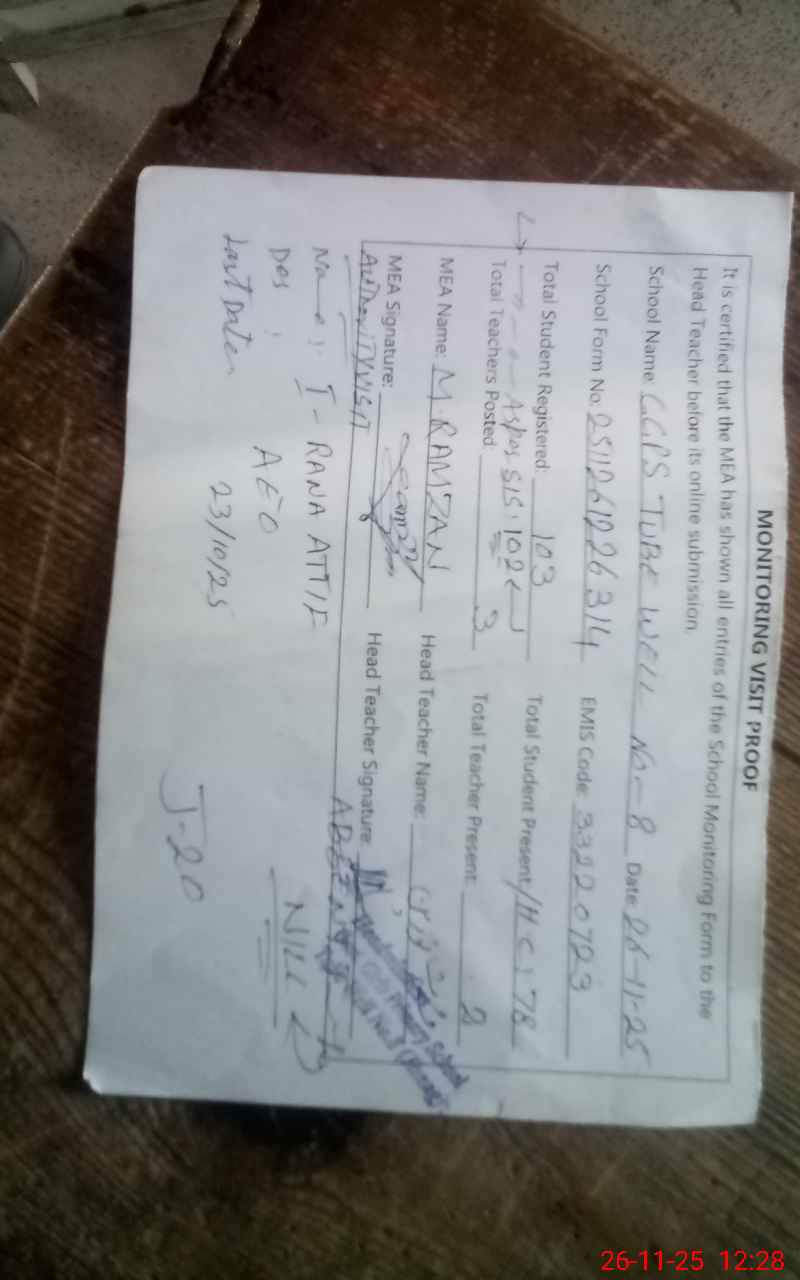 MONITORING VISIT PROOF
It is certified that the MEA has shown all entries of the School Monitoring Form to the
Head Teacher before its online submission.
School Name: GGPS TUBE WELL No - 8 Date: 26-11-25
School Form No. EMIS Code: 33220723
Total Student Registered: 103 Total Student Present/H C: 78
As per SIS: 102
Total Teachers Posted: 3 Total Teacher Present: 2
MEA Name: M. RAMZAN Head Teacher Name:
MEA Signature: Head Teacher Signature:
AUTHORITY VISIT
Name: RANA ATTIF
NILL
Des: AEO
Last Date: 23/10/25
J-20
26-11-25 12:28